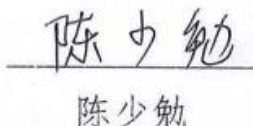 陈少勉
陈少勉